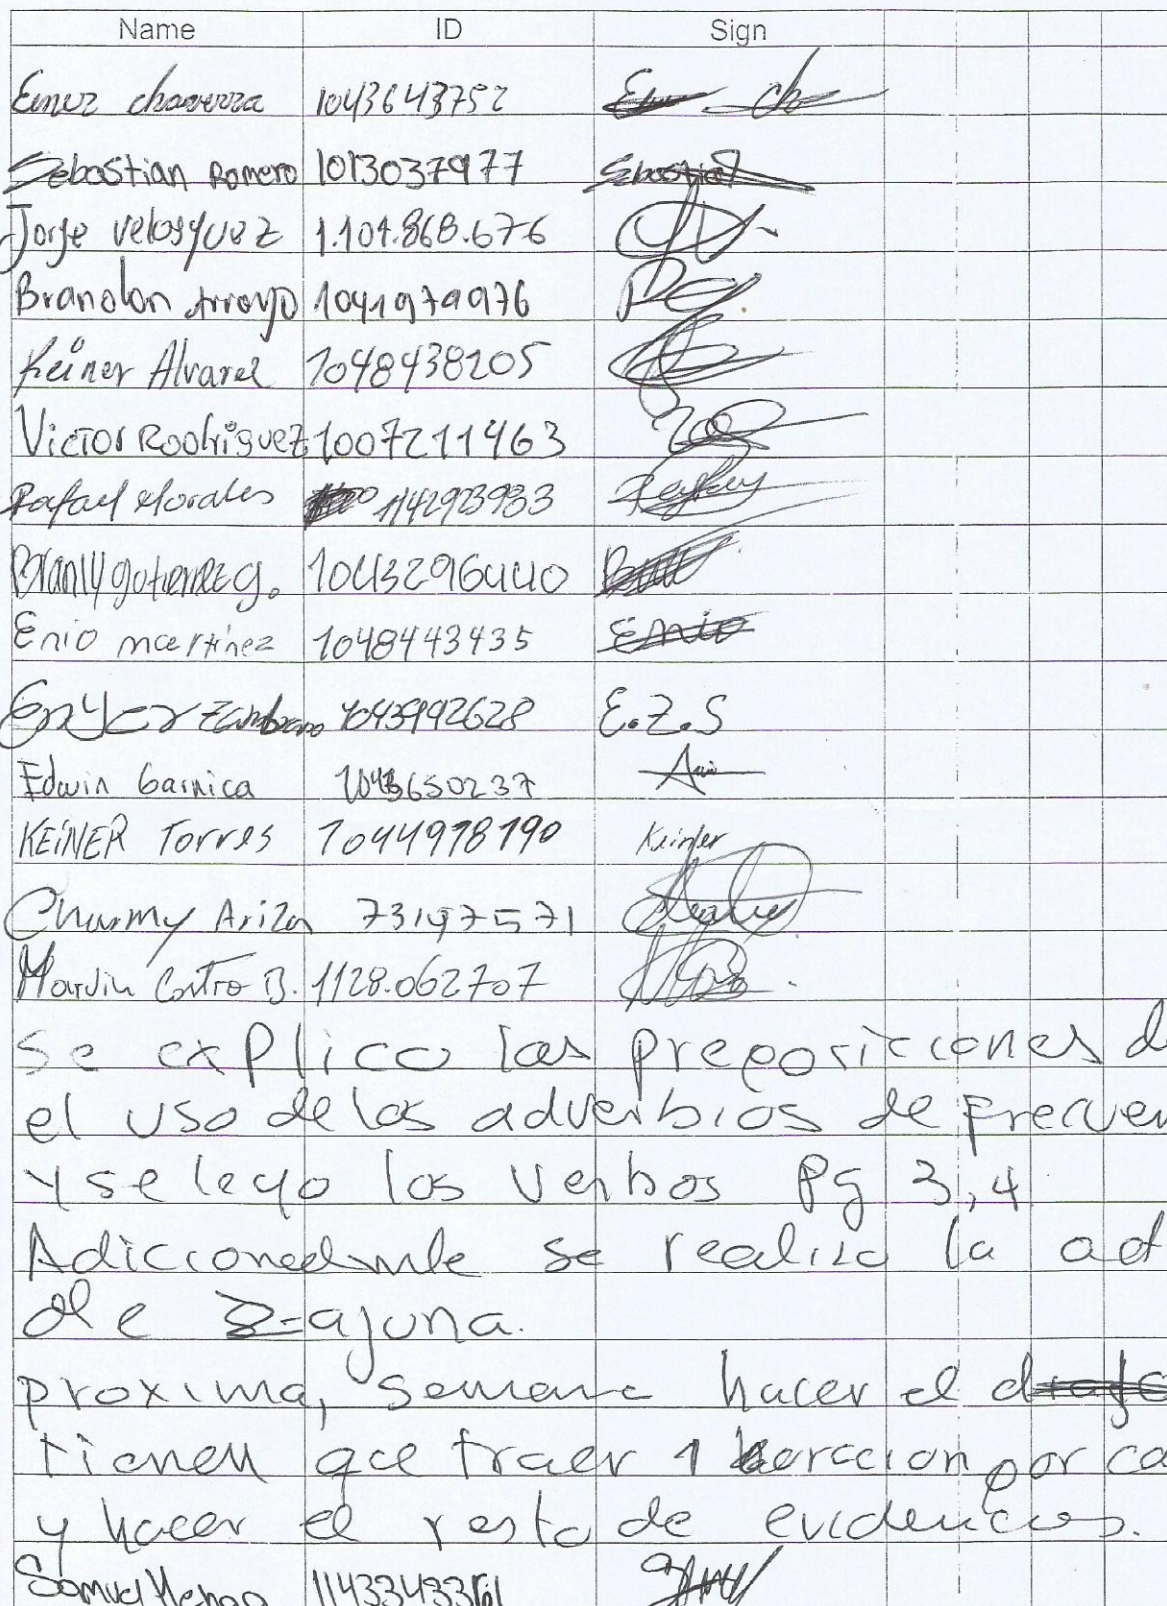 Name ID Sign
Einer chaverra 1043643752
Sebastian Romero 1013037977 Sebastian
Jorge Velasquez 1.101.868.676
Brandon Arroyo 1041979976
Keiner Alvarez 1048438205
Victor Rodriguez 1007211463
Rafael Morales 1142923933
Branlly gutierrez g. 1043296440
Enio martinez 1048443435 Enio
Enyer Zambrano 1043992628 E.Z.S
Edwin Garnica 1043650237
KEiNER Torres 1044978190 Keiner
Charmy Ariza 73197571
Marvin Castro B. 1128.062707
Se explico las preposiciones d
el uso de los adverbios de frecuen
y se leyo los Verbos Pg 3,4
Adicionalmente se realizo la act
de Z-ajuna.
proxima, semana hacer el
tienen que traer 1 oracion por ca
y hacer el resto de evidencias.
Samuel